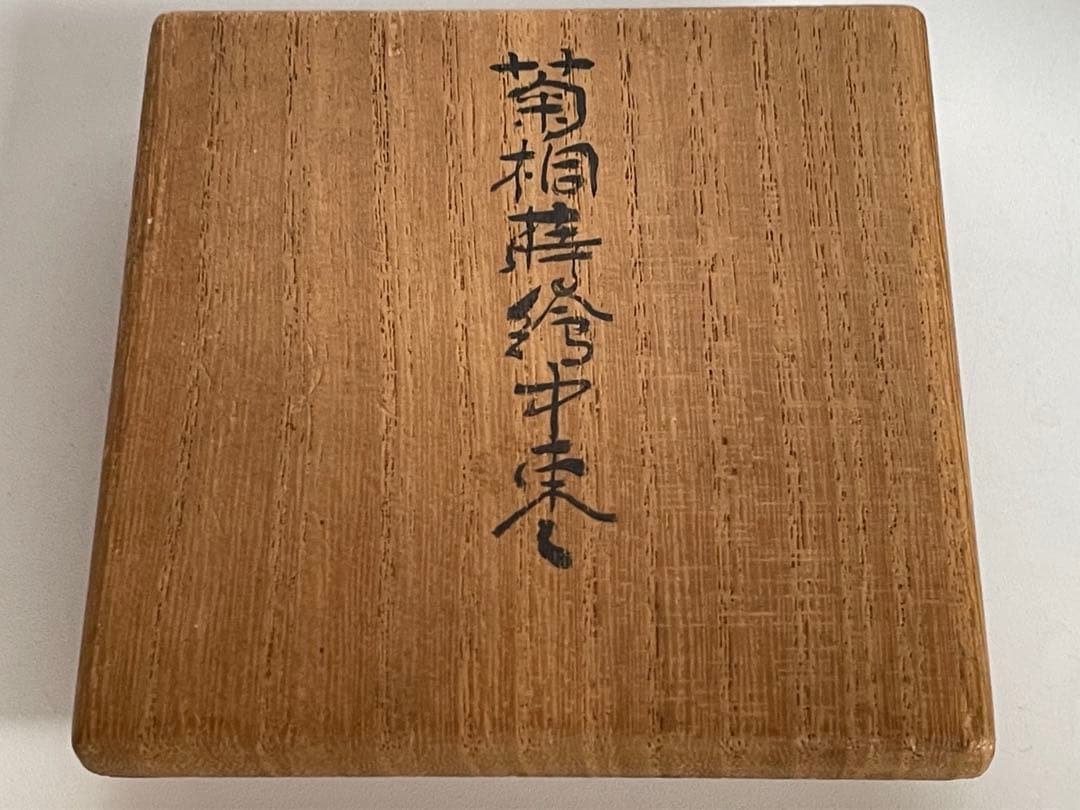 菊桐蒔繪中棗